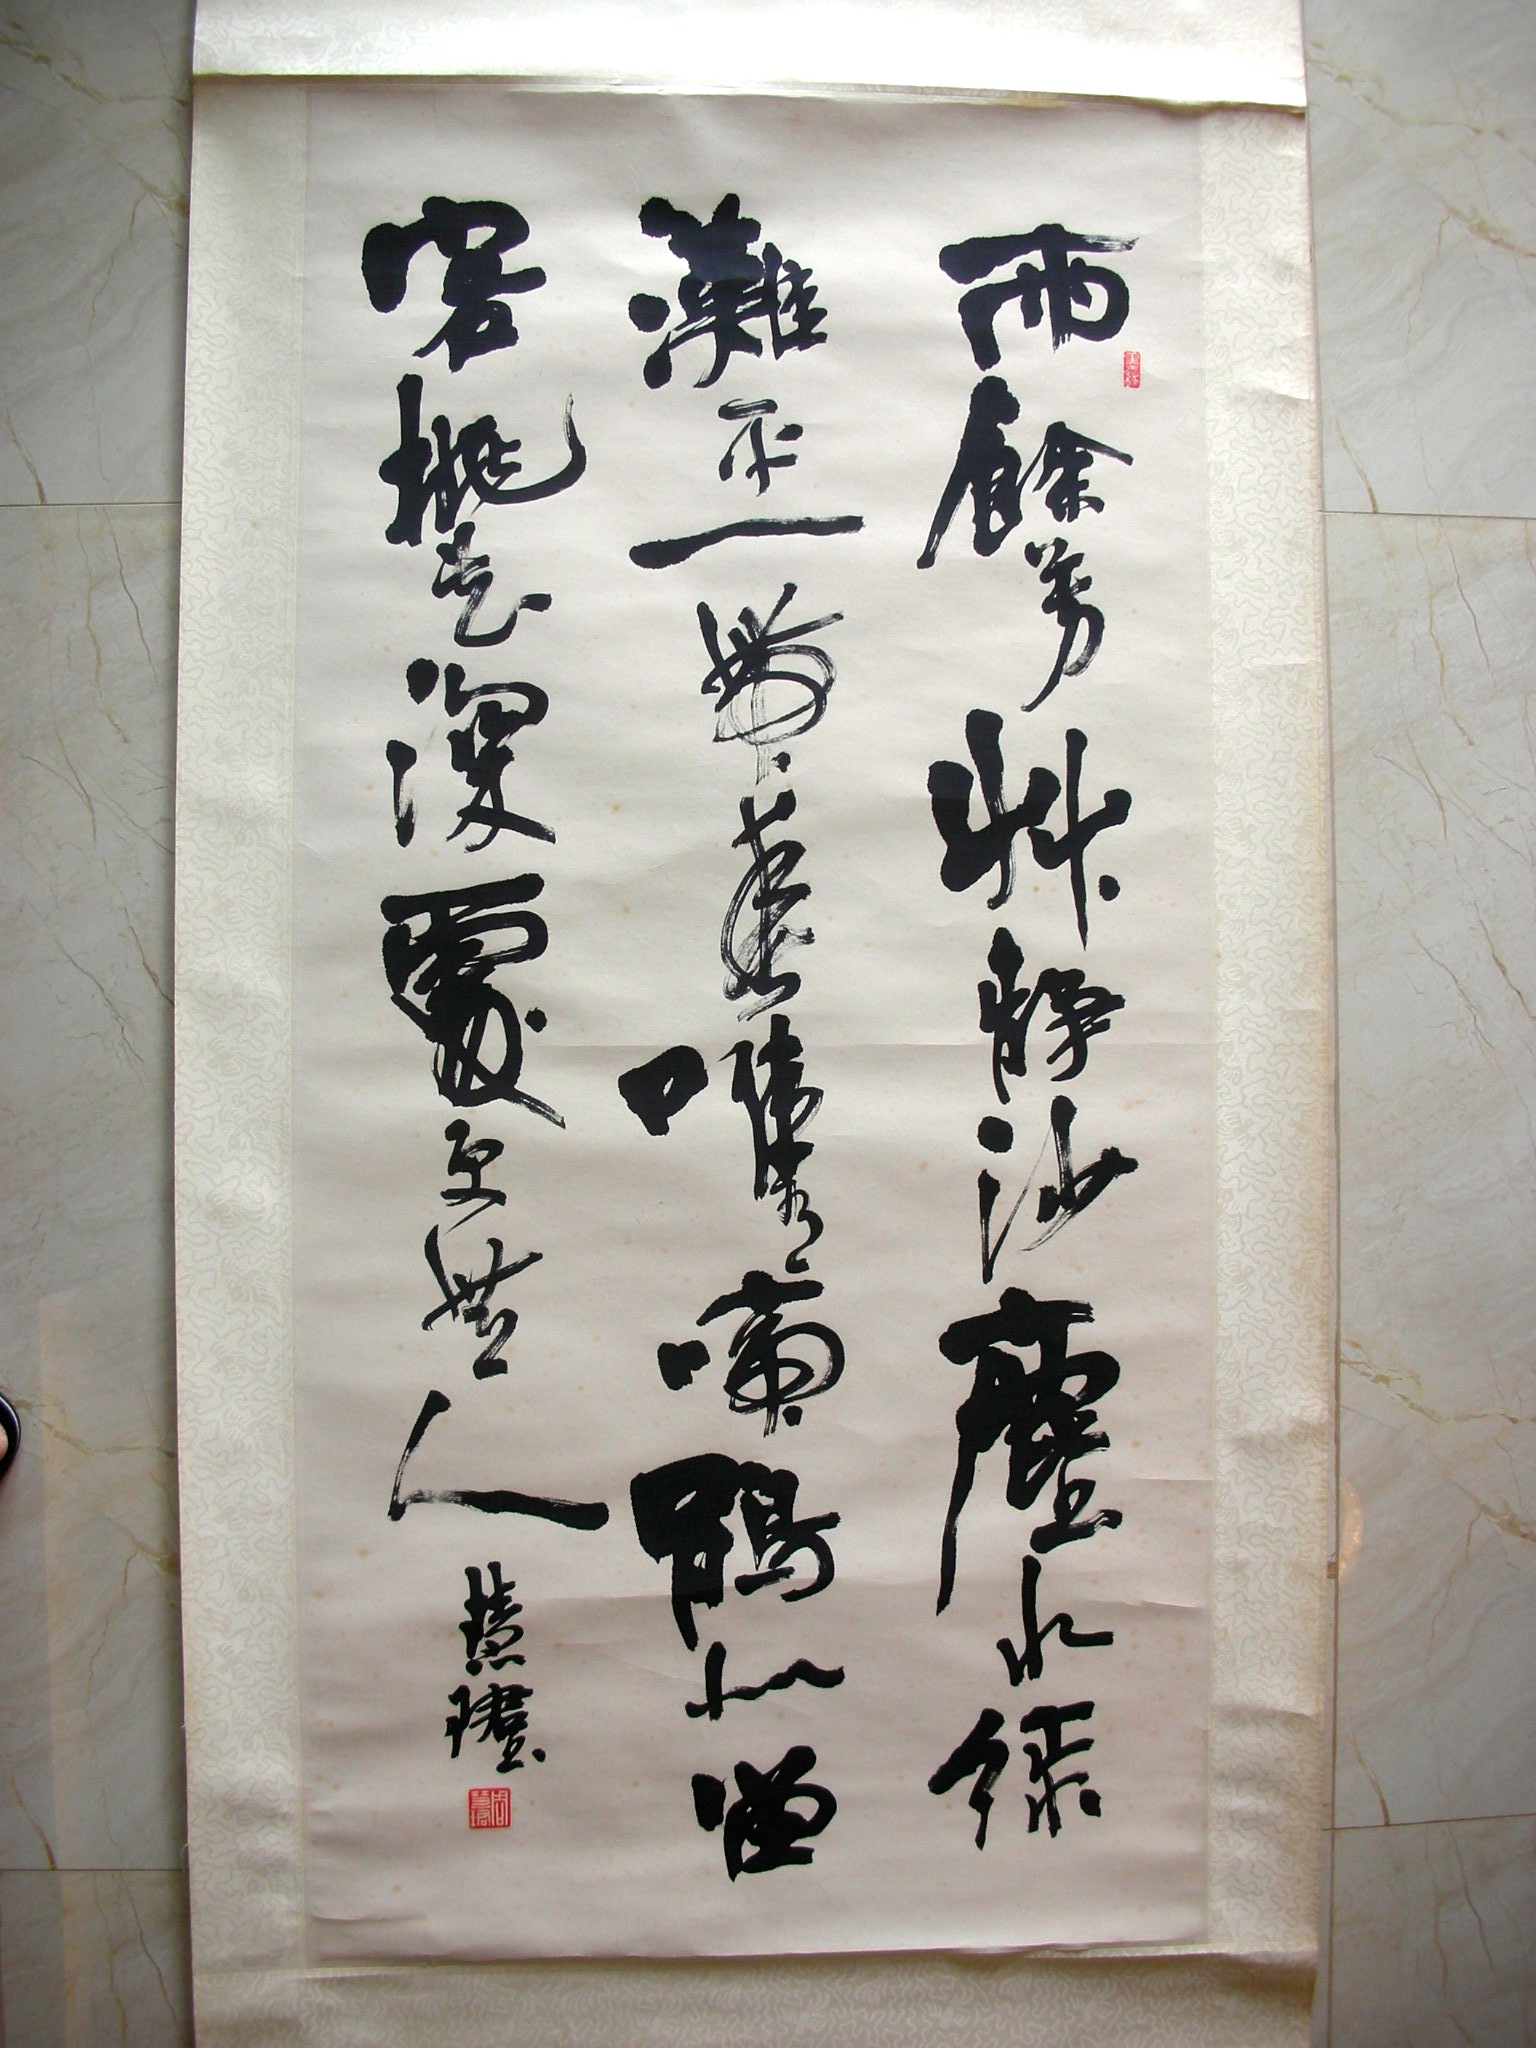 雨餘芳艸靜沙塵水綠
灘平一帶春唯有啼鵑似留
客桃花深處更無人
慧珺
周慧珺